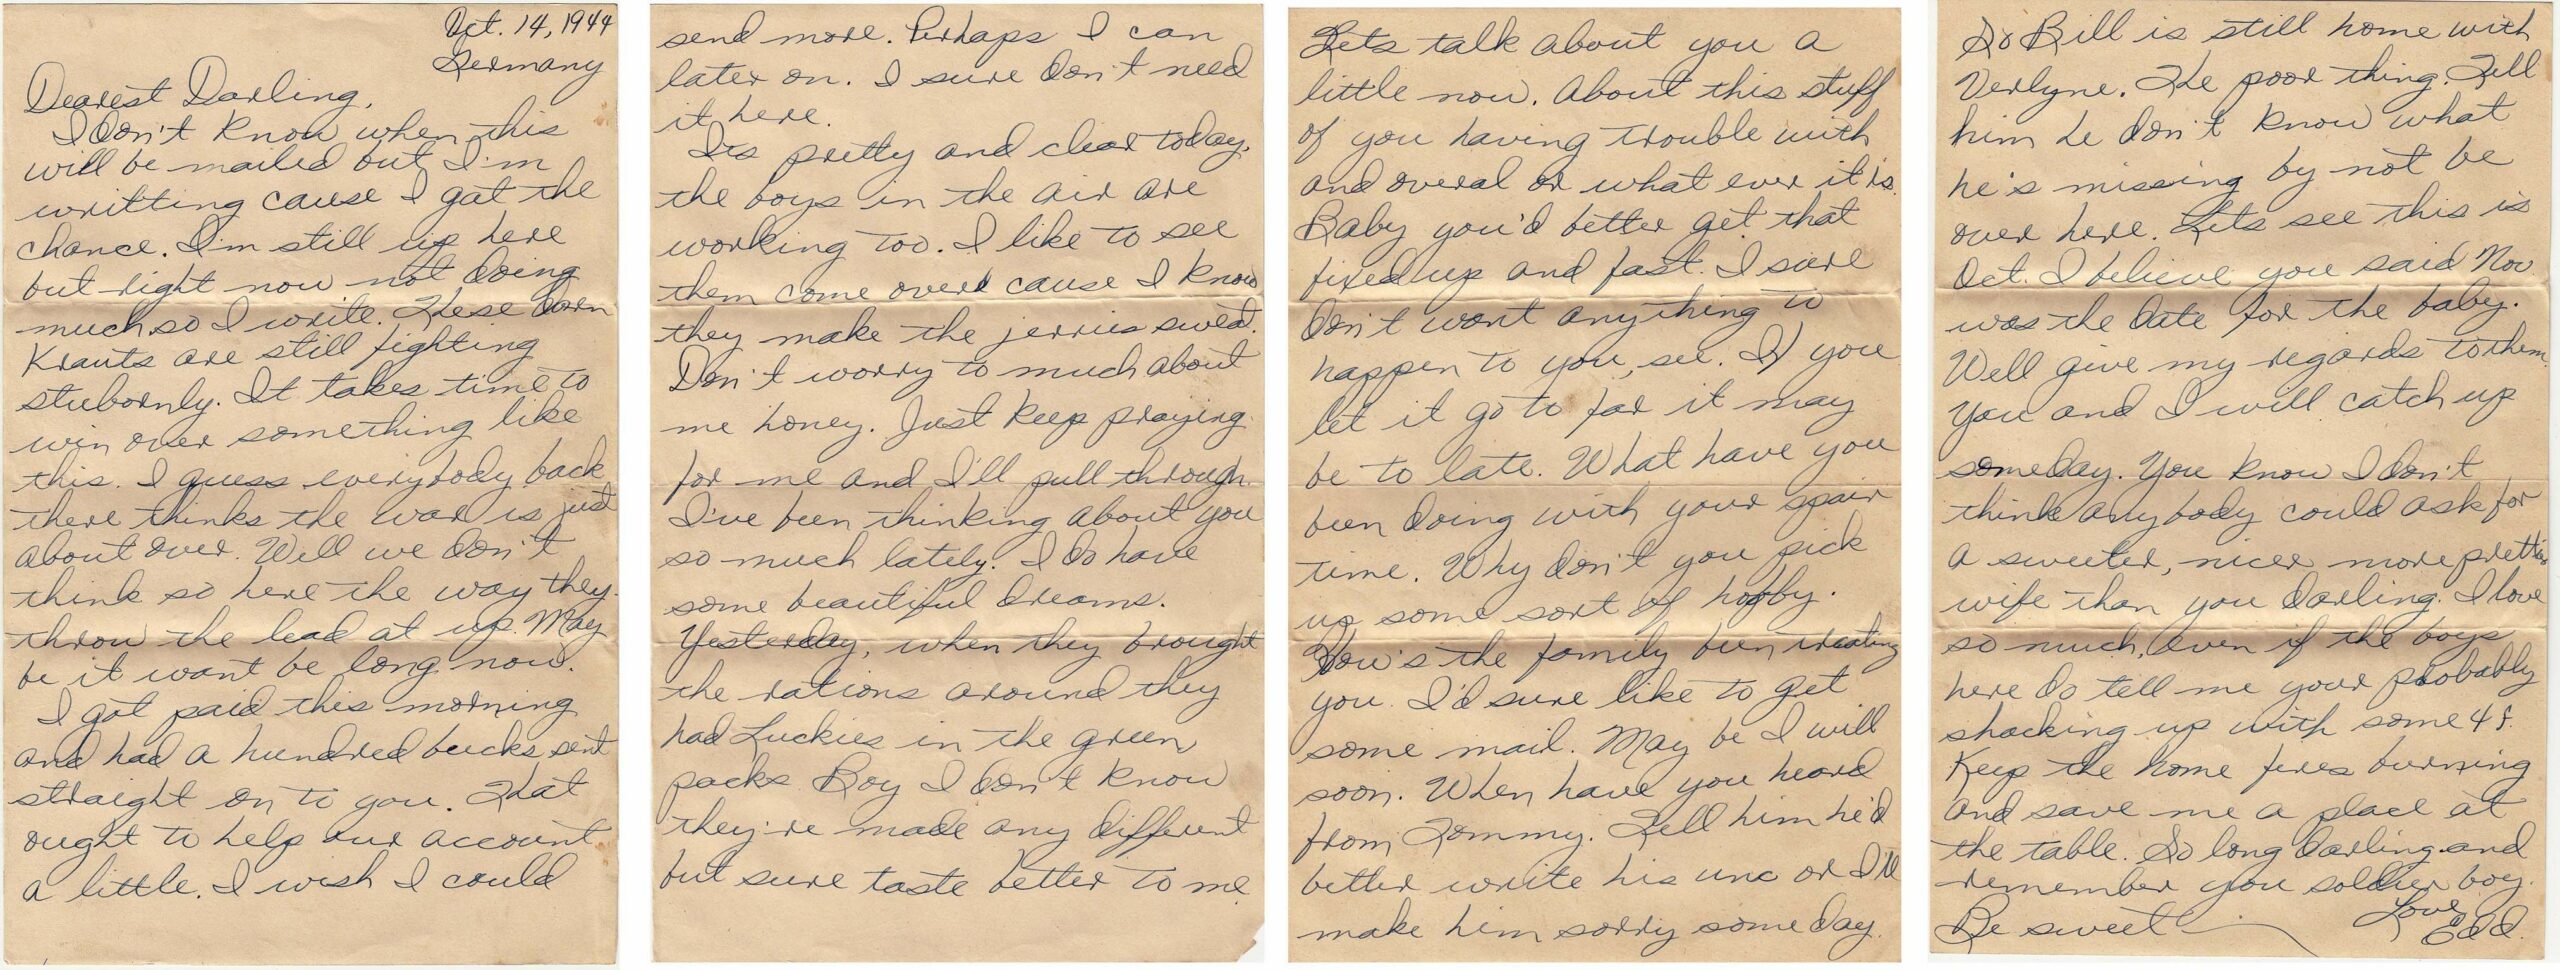 Oct. 14, 1944
Germany
Dearest Darling,
I don't know when this
will be mailed but I'm
writting cause I got the
chance. I'm still up here
but right now not doing
much so I write. These darn
Krauts are still fighting
stubornly. It takes time to
win over something like
this. I guess everybody back
there thinks the war is just
about over. Well we don't
think so here the way they
throw the lead at up. May
be it want be long now.
I got paid this morning
and had a hundred bucks sent
straight on to you. That
ought to help our account
a little. I wish I could
send more. Perhaps I can
later on. I sure don't need
it here.
Its pretty and clear today,
the boys in the air are
working too. I like to see
them come over cause I know
they make the jerries sweat.
Don't worry to much about
me honey. Just keep praying
for me and I'll pull through.
I've been thinking about you
so much lately. I do have
some beautiful dreams.
Yesterday, when they brought
the rations around they
had Luckies in the green
packs. Boy I don't know
they're made any different
but sure taste better to me
Lets talk about you a
little now. About this stuff
of you having trouble with
and overal or what ever it is.
Baby you'd better get that
fixed up and fast. I sure
don't want anything to
happen to you, see. If you
let it go to far it may
be to late. What have you
been doing with your spair
time. Why don't you pick
up some sort of hobby.
How's the family been treating
you. I'd sure like to get
some mail. May be I will
soon. When have you heard
from Tommy. Tell him he'd
better write his unc or I'll
make him sorry some day.
So Bill is still home with
Verlyne. The poor thing. Tell
him he don't know what
he's missing by not be
over here. Lets see this is
Oct. I believe you said Nov.
was the date for the baby.
Well give my regards to them.
You and I will catch up
someday. You know I don't
think anybody could ask for
a sweeter, nicer more prettier
wife than you darling. I love
so much, even if the boys
here do tell me your probably
shacking up with some 4 F.
Keep the home fires burning
and save me a place at
the table. So long darling and
remember you soldier boy.
Be sweet
Love
Edd.